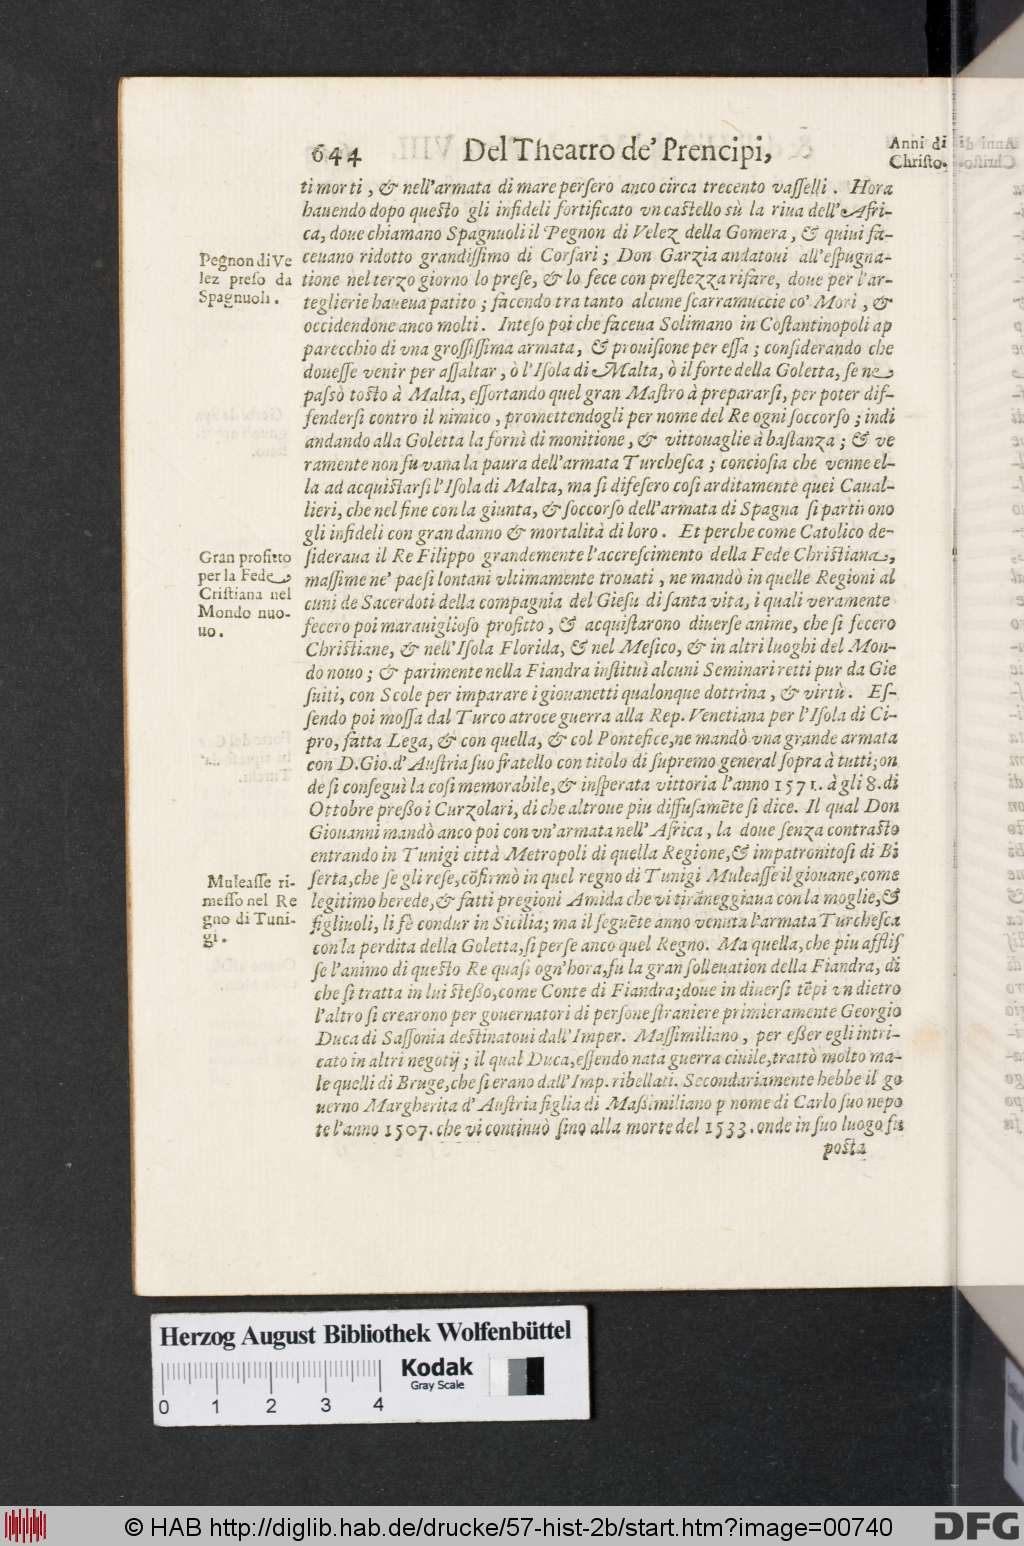 644 Del Theatro de' Prencipi, Anni di
Christo.
ti morti, & nell'armata di mare persero anco circa trecento vasselli. Hora
hauendo dopo questo gli infideli fortificato vn castello sù la riua dell'Afri-
ca, doue chiamano Spagnuoli il Pegnon di Velez della Gomera, & quiui fa-
Pegnon di Ve
lez preso da
Spagnuoli.
ceuano ridotto grandissimo di Corsari; Don Garzia andatoui all'espugna-
tione nel terzo giorno lo prese, & lo fece con prestezza rifare, doue per l'ar-
teglierie haueua patito; facendo tra tanto alcune scarramuccie co' Mori, &
occidendone anco molti. Inteso poi che faceua Solimano in Costantinopoli ap
parecchio di vna grossissima armata, & prouisione per essa; considerando che
douesse venir per assaltar, ò l'Isola di Malta, ò il forte della Goletta, se ne
passò tosto à Malta, essortando quel gran Mastro à prepararsi, per poter dif-
fendersi contro il nimico, promettendogli per nome del Re ogni soccorso; indi
andando alla Goletta la fornì di monitione, & vittouaglie à bastanza; & ve
ramente non fu vana la paura dell'armata Turchesca; conciosia che venne el-
la ad acquistarsi l'Isola di Malta, ma si difesero cosi arditamente quei Caual-
lieri, che nel fine con la giunta, & soccorso dell'armata di Spagna si partirono
gli infideli con gran danno & mortalità di loro. Et perche come Catolico de-
Gran profitto
per la Fede
Cristiana nel
Mondo nuo-
uo.
sideraua il Re Filippo grandemente l'accrescimento della Fede Christiana,
massime ne' paesi lontani vltimamente trouati, ne mandò in quelle Regioni al
cuni de Sacerdoti della compagnia del Giesu di santa vita, i quali veramente
fecero poi marauiglioso profitto, & acquistarono diuerse anime, che si fecero
Christiane, & nell'Isola Florida, & nel Mesico, & in altri luoghi del Mon-
do nouo; & parimente nella Fiandra instituì alcuni Seminari retti pur da Gie
suiti, con Scole per imparare i giouanetti qualonque dottrina, & virtù. Es-
sendo poi mossa dal Turco atroce guerra alla Rep. Venetiana per l'Isola di Ci-
pro, fatta Lega, & con quella, & col Pontefice, ne mandò vna grande armata
con D. Gio. d'Austria suo fratello con titolo di supremo general sopra à tutti; on
de si conseguì la cosi memorabile, & insperata vittoria l'anno 1571. à gli 8. di
Ottobre presso i Curzolari, di che altroue piu diffusamēte si dice. Il qual Don
Giouanni mandò anco poi con vn'armata nell'Africa, la doue senza contrasto
entrando in Tunigi città Metropoli di quella Regione, & impatronitosi di Bi
Muleasse ri-
messo nel Re
gno di Tuni-
gi.
serta, che se gli rese, cōfirmò in quel regno di Tunigi Muleasse il giouane, come
legitimo herede, & fatti pregioni Amida che vi tirāneggiaua con la moglie, &
figliuoli, li fè condur in Sicilia; ma il seguēte anno venuta l'armata Turchesca
con la perdita della Goletta, si perse anco quel Regno. Ma quella, che piu afflis
se l'animo di questo Re quasi ogn'hora, fu la gran solleuation della Fiandra, di
che si tratta in lui stesso, come Conte di Fiandra; doue in diuersi tēpi vn dietro
l'altro si crearono per gouernatori di persone straniere primieramente Georgio
Duca di Sassonia destinatoui dall'Imper. Massimiliano, per esser egli intri-
cato in altri negotij; il qual Duca, essendo nata guerra ciuile, trattò molto ma-
le quelli di Bruge, che si erano dall'Imp. ribellati. Secondariamente hebbe il go
uerno Margherita d'Austria figlia di Massimiliano p nome di Carlo suo nepo
te l'anno 1507. che vi continuò sino alla morte del 1533. onde in suo luogo fu
posta
Herzog August Bibliothek Wolfenbüttel
Kodak
Gray Scale
0 1 2 3 4
© HAB http://diglib.hab.de/drucke/57-hist-2b/start.htm?image=00740 DFG